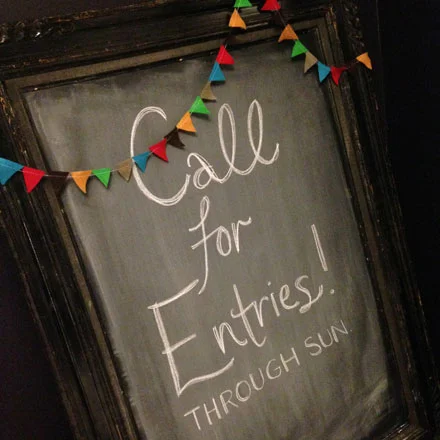 Call
for
Entries!
THROUGH SUN.